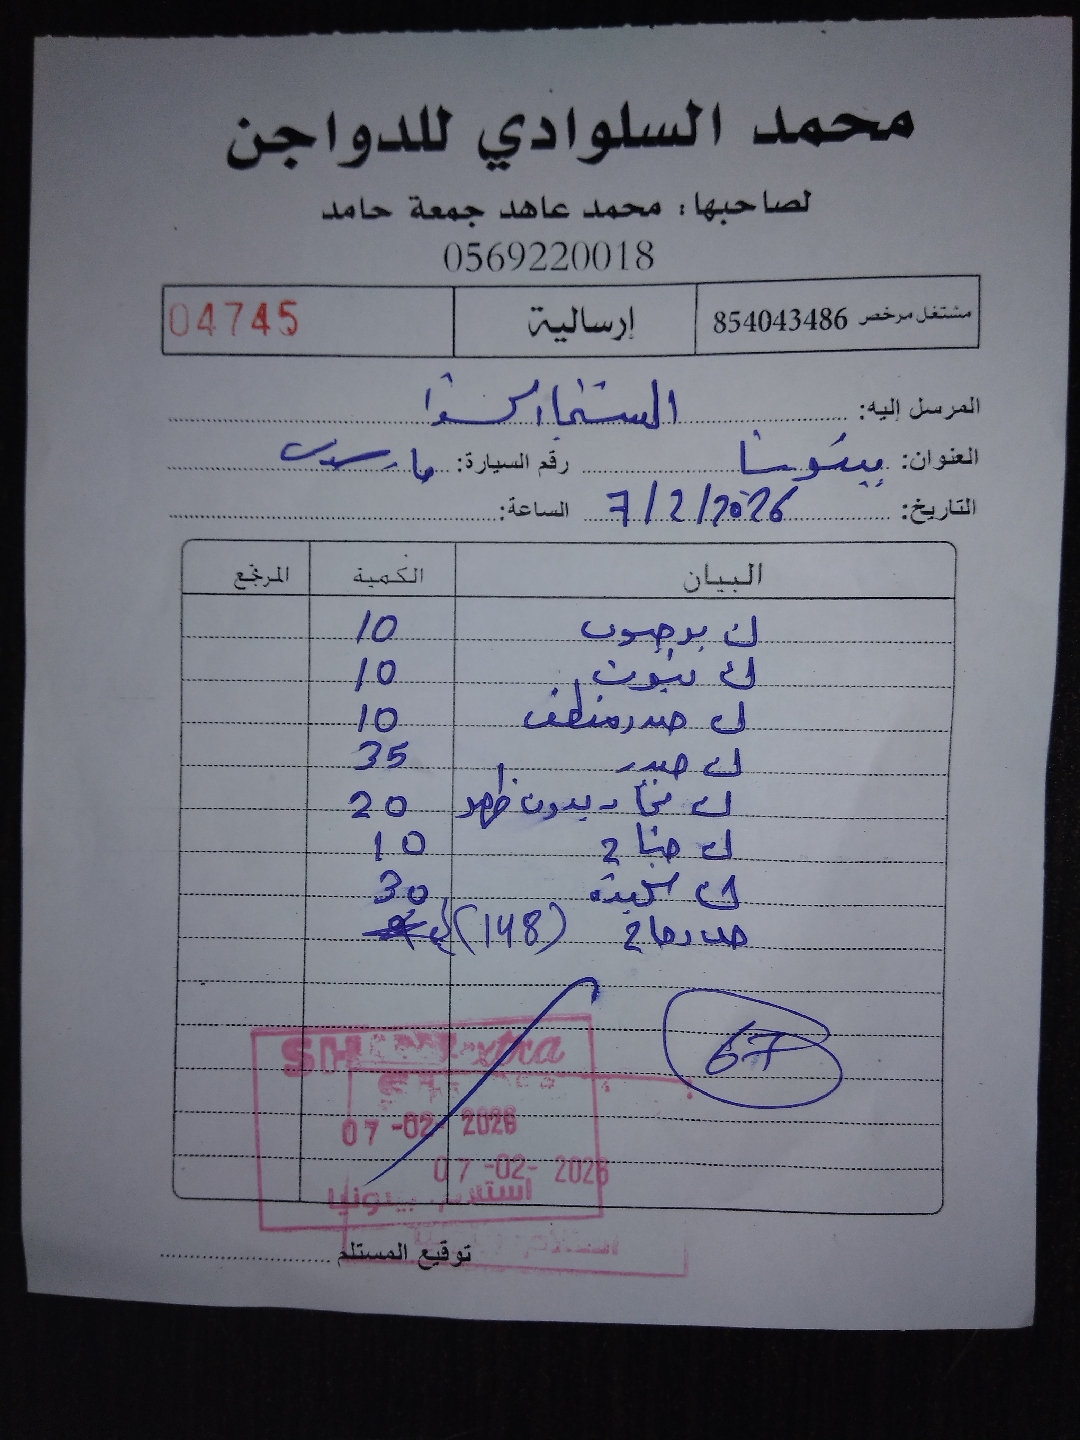 محمد السلوادي للدواجن
لصاحبها: محمد عاهد جمعة حامد
0569220018
مشتغل مرخص 854043486 إرسالية 04745
المرسل إليه:
العنوان: بيتونيا رقم السيارة:
التاريخ: 7/2/2026 الساعة:
البيان الكمية المرتجع
ك 10
ك 10
ك صدر منظف 10
ك صدر 35
ك بدون ظهر 20
ك جناح 10
ك كبدة 30
(148)
67
07-02-2026
07-02-2026
استلام بيتونيا
توقيع المستلم